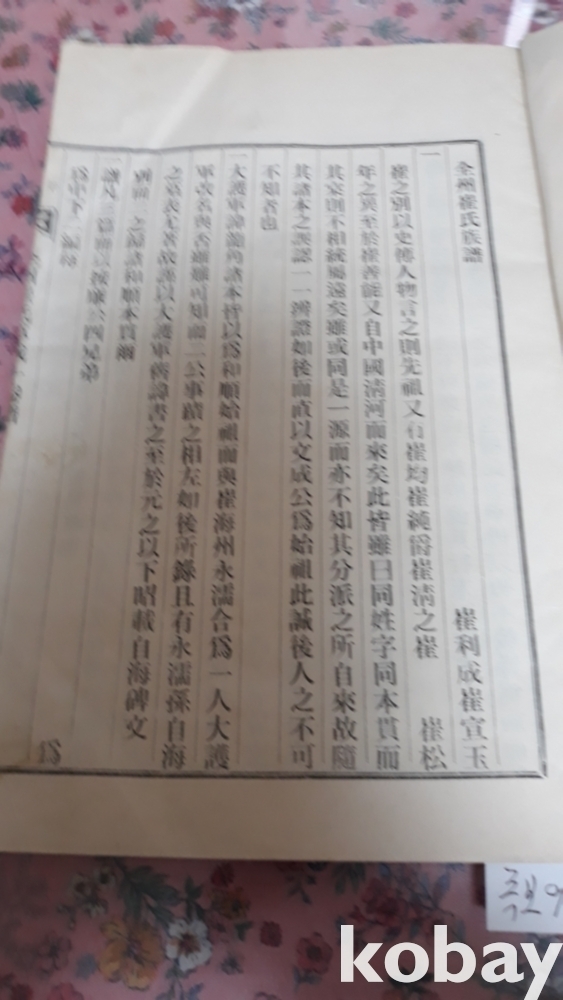 全州崔氏族譜 崔利成崔宣玉
一 崔之別以史傳人物言之則先祖又有崔均崔純爵崔淸之崔 崔松
年之異至於崔善能又自中國淸河而來矣此皆雖曰同姓字同本貫而
其宗則不相統屬遠矣雖或同是一源而亦不知其分派之所自來故隨
其諸本之誤認一一辨證如後而直以文成公爲始祖此誠後人之不可
不知者也
一大護軍諱龍角諸本皆以爲和順始祖而與崔海州永濡合爲一人大護
軍改名與否雖難可知而二公事蹟之相左如後所錄且有永濡孫自海
之墓表尤著故譜以大護軍舊諱書之至於元之以下昭載自海碑文
別 之歸諸和順本貫
一譜凡 公四兄弟
爲中下二編
족보
kobay